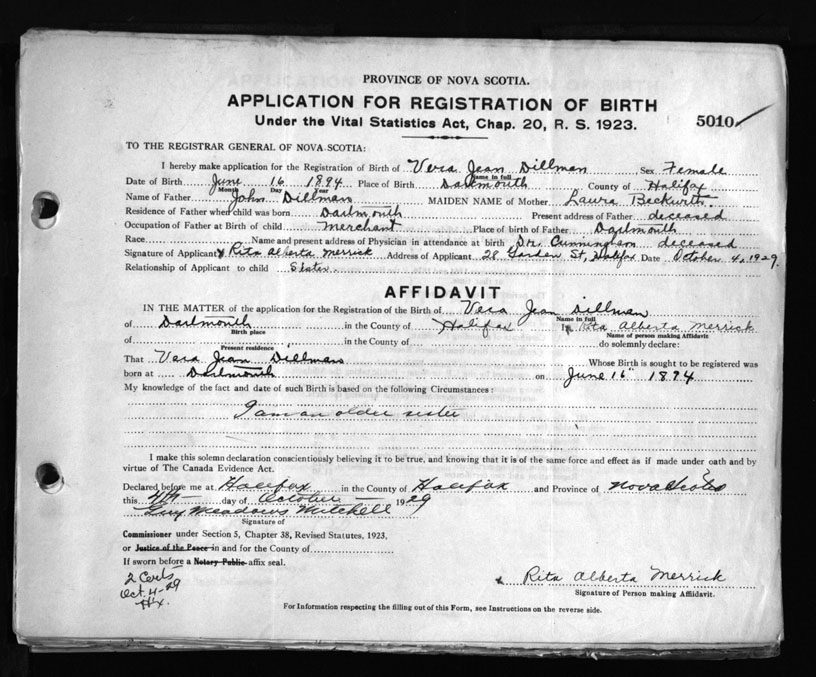 PROVINCE OF NOVA SCOTIA.
APPLICATION FOR REGISTRATION OF BIRTH
5010
Under the Vital Statistics Act, Chap. 20, R. S. 1923.
TO THE REGISTRAR GENERAL OF NOVA SCOTIA:
I hereby make application for the Registration of Birth of Vera Jean Dillman Sex Female
Name in full
Date of Birth June 16 1894 Place of Birth Dartmouth County of Halifax
Month Day Year
Name of Father John Dillman MAIDEN NAME of Mother Laura Beckwith
Residence of Father when child was born Dartmouth Present address of Father deceased
Occupation of Father at Birth of child Merchant Place of birth of Father Dartmouth
Race Name and present address of Physician in attendance at birth Dr. deceased
Signature of Applicant Rita Alberta Merrick Address of Applicant 28 Garden St, Halifax Date October 4, 1929.
Relationship of Applicant to child Sister
AFFIDAVIT
IN THE MATTER of the application for the Registration of the Birth of Vera Jean Dillman
Name in full
of Dartmouth in the County of Halifax I, Rita Alberta Merrick
Birth place Name of person making Affidavit
of in the County of do solemnly declare:
Present residence
That Vera Jean Dillman Whose Birth is sought to be registered was
born at Dartmouth on June 16" 1894
My knowledge of the fact and date of such Birth is based on the following Circumstances:
I am an older sister
I make this solemn declaration conscientiously believing it to be true, and knowing that it is of the same force and effect as if made under oath and by
virtue of The Canada Evidence Act.
Declared before me at Halifax in the County of Halifax and Province of Nova Scotia
this 4th day of October 1929
Guy Meadows Mitchell
Signature of
Commissioner under Section 5, Chapter 38, Revised Statutes, 1923.
or Justice of the Peace in and for the County of
If sworn before a Notary Public affix seal.
2 Certs
Oct. 4-29
Hx.
Rita Alberta Merrick
Signature of Person making Affidavit.
For Information respecting the filling out of this Form, see Instructions on the reverse side.